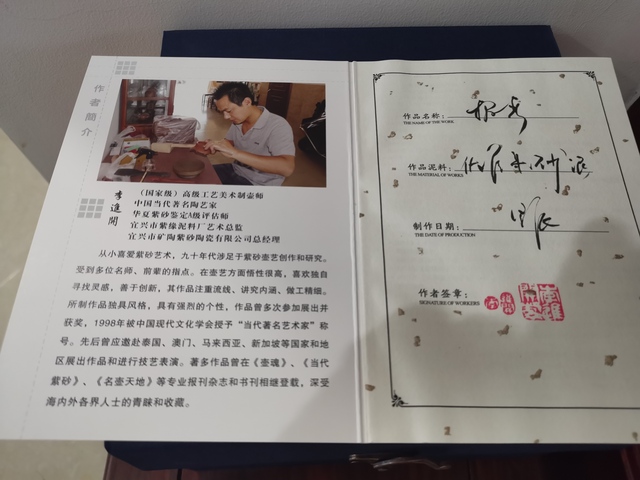 作者簡介
李進開
（国家级）高级工艺美术制壶师
中国当代著名陶艺家
华夏紫砂鉴定A级评估师
宜兴市紫缘泥料厂艺术总监
宜兴市矿陶紫砂陶瓷有限公司总经理
从小喜爱紫砂艺术，九十年代涉足于紫砂壶艺创作和研究。
受到多位名师、前辈的指点。在壶艺方面悟性很高，喜欢独自
寻找灵感，善于创新，其作品注重流线、讲究内涵、做工精细。
所制作品独具风格，具有强烈的个性，作品曾多次参加展出并
获奖，1998年被中国现代文化学会授予“当代著名艺术家”称
号。先后曾应邀赴泰国、澳门、马来西亚、新加坡等国家和地
区展出作品和进行技艺表演。著多作品曾在《壶魂》、《当代
紫砂》、《名壶天地》等专业报刊杂志和书刊相继登载，深受
海内外各界人士的青睐和收藏。
作品名称：
THE NAME OF THE WORK
作品泥料：
THE MATERIAL OF WORKS
制作日期：
THE DATE OF PRODUCTION
作者签章：
SIGNATURE OF WORKERS